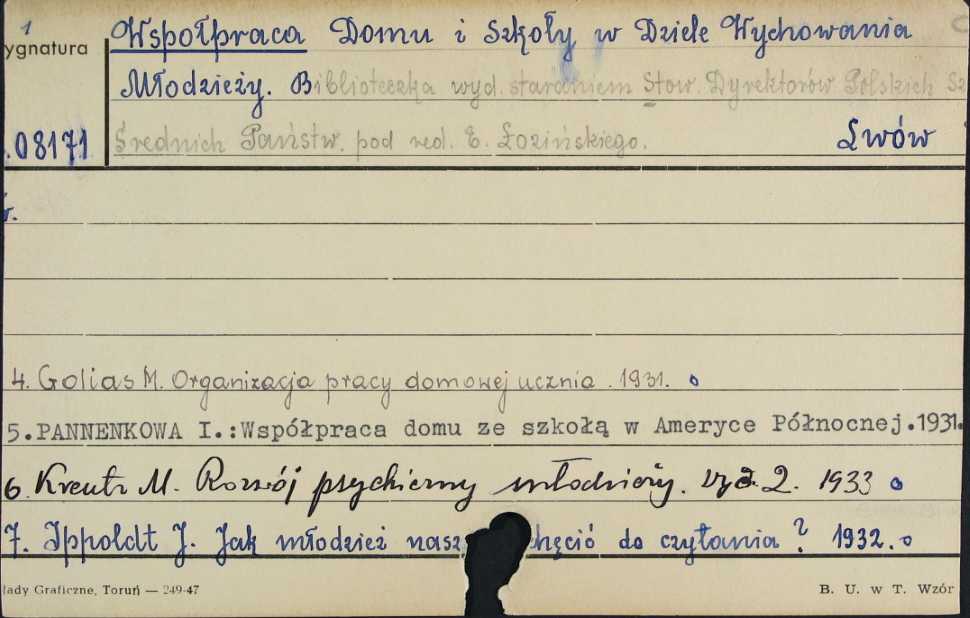 1
ygnatura
Współpraca Domu i Szkoły w Dziele Wychowania
Młodzieży. Biblioteczka wyd. staraniem Stow. Dyrektorów Polskich Sz
.08171 Średnich Państw. pod red. E. Łozińskiego. Lwów
r.
4. Golias M. Organizacja pracy domowej ucznia. 1931. o
5.PANNENKOWA I.:Współpraca domu ze szkołą w Ameryce Północnej.1931.
6. Kreutz M. Rozwój psychiczny młodzieży. Wyd. 2. 1933 o
7. Ippoldt J. Jak młodzież nasz hęcić do czytania? 1932. o
łady Graficzne, Toruń — 249-47
B. U. w T. Wzór